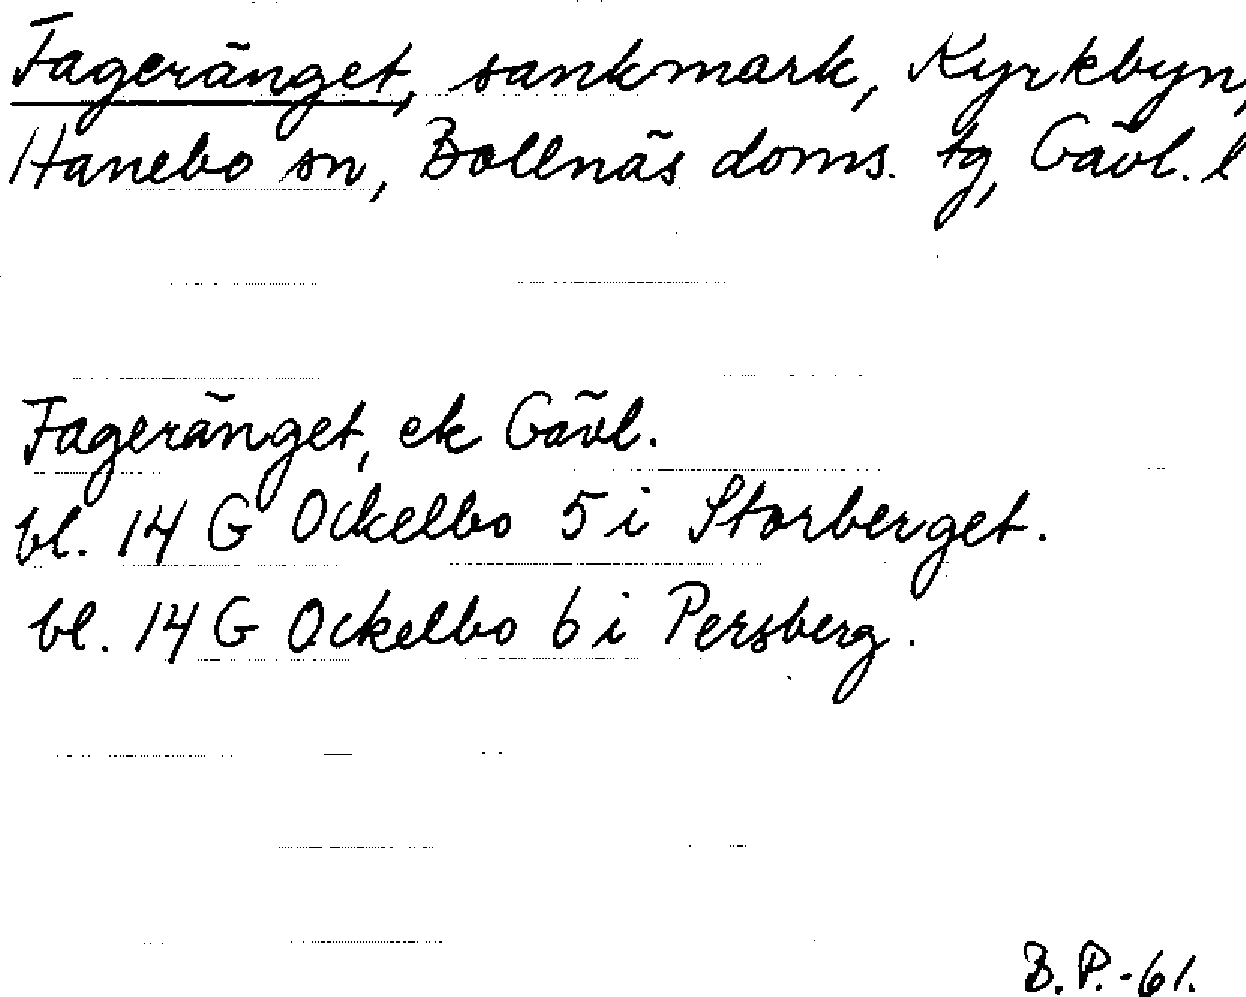 Fageränget, sankmark, Kyrkbyn,
Hanebo sn, Bollnäs doms. tg, Gävl. l
Fageränget, ek Gävl.
bl. 14 G Ockelbo 5 i Storberget.
bl. 14 G Ockelbo 6 i Persberg.
B.P.-61.